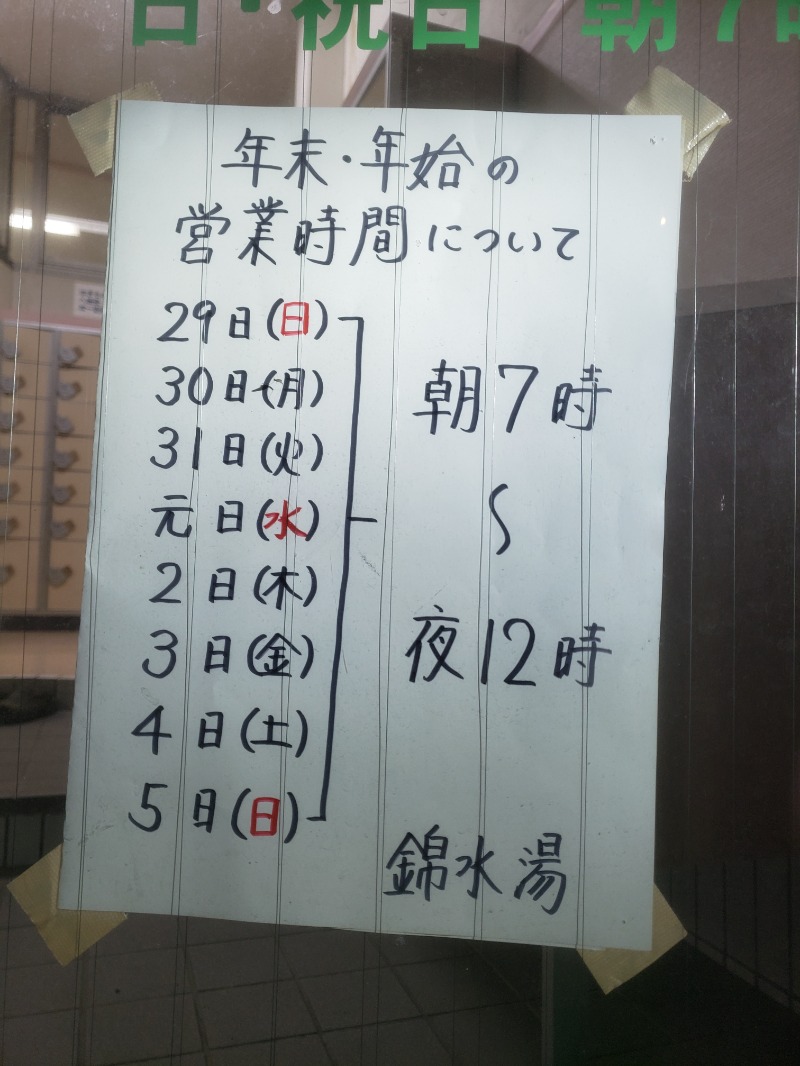 日・祝日 朝7時
年末・年始の
営業時間について
29日(日)
30日(月)
31日(火)
元日(水)
2日(木)
3日(金)
4日(土)
5日(日)
朝7時
〜
夜12時
錦水湯